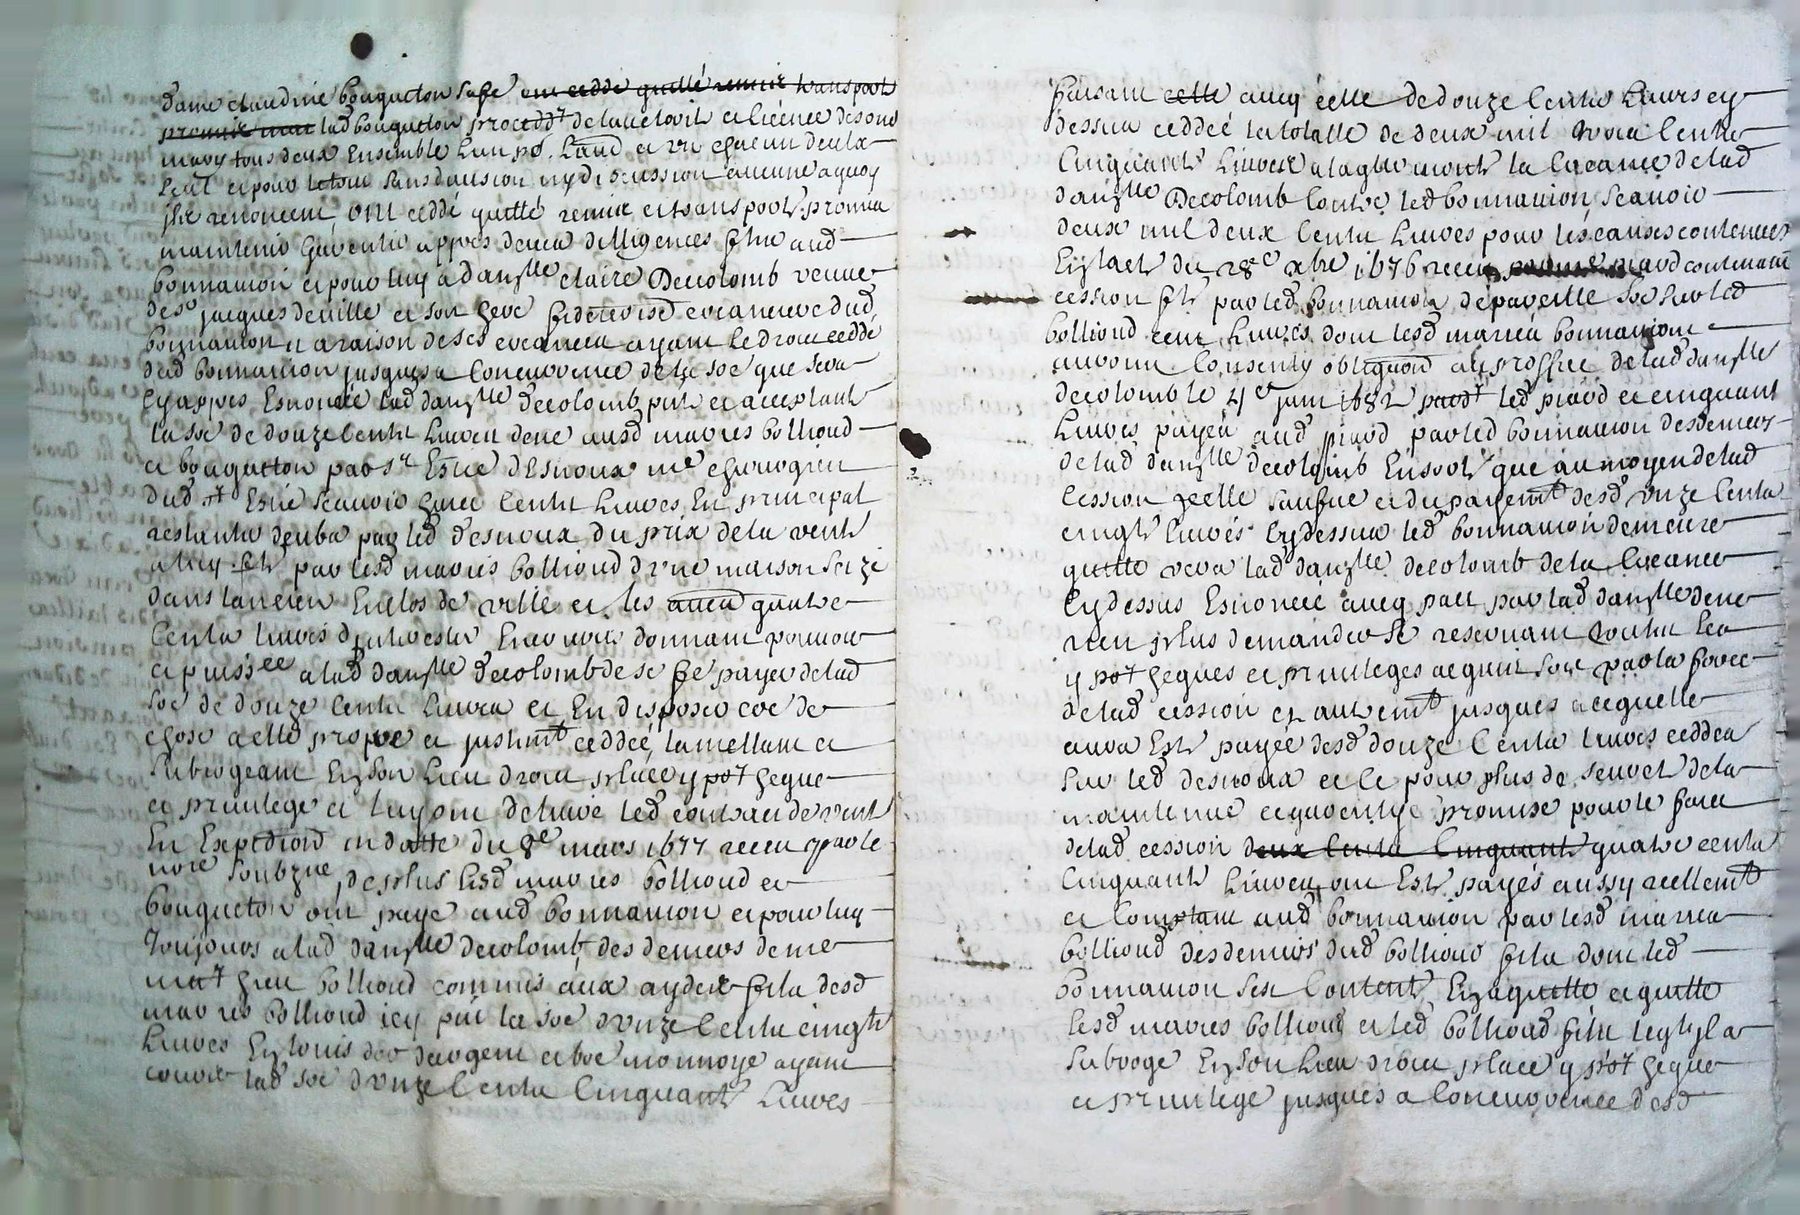 dame claudine bouqueton sa fe ont ceddé quitté remis transport
promis mai lad bouqueton procedd^t de lauctorité et licence de son d
mary tous deux Ensemble L'un po^r L'aud et un chacun deulx
seul et pour le tout sans division ny discussion aucune a quoy
ilz renoncent ont ceddé quitté remis et transporté promis
maintenir Garentir appres deues dilligences fte aud
bonnamour et pour luy a dam^lle claire Decolomb veuve
de s^r jacques deville et son here creanciere dud
bonnamour et a raison de ses creances ayant le droit ceddé
dud bonnamour jusques a Concurrence de la soe que sera
cy appres Enoncée lad dam^lle decolomb pnte et acceptant
la soe de douze Cents Livres deue ausd mariés bollioud
et bouqueton par s^r Esne desnoux m^e chirurgien
dud s^t Esne scavoir huict Cents Livres En principal
restants deubs par led desnoux du prix de la vente
a luy fte par lesd mariés bollioud d'une maison size
dans lancien Enclos de ville et les quatre
Cents livres d'interests donnant pouvoir
et puiss^ce a lad dam^lle decolomb de se fe payer de lad
soe de douze Cents Livres et En disposer coe de
chose a elle propre et justm^t ceddée, la mettant et
subrogeant En son Lieu droit place ypot heque
et privilege et luy ont delivré led contract de vente
En Expedition en datte du 8^e mars 1677 receu par le
no^re soubzne, de plus lesd mariés bollioud et
bouqueton ont payé aud bonnamour et pour luy
Toujours a lad dam^lle decolomb des deniers de me
mathieu bollioud commis aux aydes fils desd
mariés bollioud icy pnt la soe d'unze Cents cinqte
Livres En louis d'or d'argent et boe monnoye ayant
cours lad soe d'unze Cents Cinquante Livres
faisant celle avecq celle de douze Cents Livres cy
dessus ceddée la totalle de deux mil trois Cents
Cinquante Livres a laquelle monte la Creance de lad
dam^lle Decolomb Contre led bonnamour scavoir
deux mil deux Cents Livres pour les causes contenues
En lacte du 28^e xbre 1676 receu contenant
cession fte par led bonnamour de pareille soe sur led
bollioud cent Livres dont lesd mariés bonnamour
auroient Consenty obligaon au proffit de lad dam^lle
decolomb le 4^e juin 1682 pard^t led piard et cinquante
Livres payés aud piard par led bonnamour des deniers
de lad dam^lle decolomb En sorte que au moyen de lad
Cession et du payem^t desd unze Cents
cinqte livres Cy dessus led bonnamour demeure
quitte vers lad dam^lle decolomb de la Creance
Cy dessus Enoncée avecq pact par lad dam^lle de ne
rien plus demander se reservant toutes les
ypot heques et privileges acquis soit par la force
de lad cession et autrem^t jusques a ce quelle
aura Esté payée desd douze Cents livres ceddés
sur led desnoux et ce pour plus de seureté de la
maintenue et garentye promise pour le faict
de lad cession deux Cents Cinquante quatre cents
Cinquante Livres ont Esté payés aussy reellem^t
et Comptant aud bonnamour par lesd mariés
bollioud des deniers dud bollioud fils dont led
bonnamour sest Contenté En aquitte et quitte
lesd mariés bollioud et led bollioud fils lequel a
subrogé En son Lieu droit place ypot heque
et privilege jusques a Concurrence desd